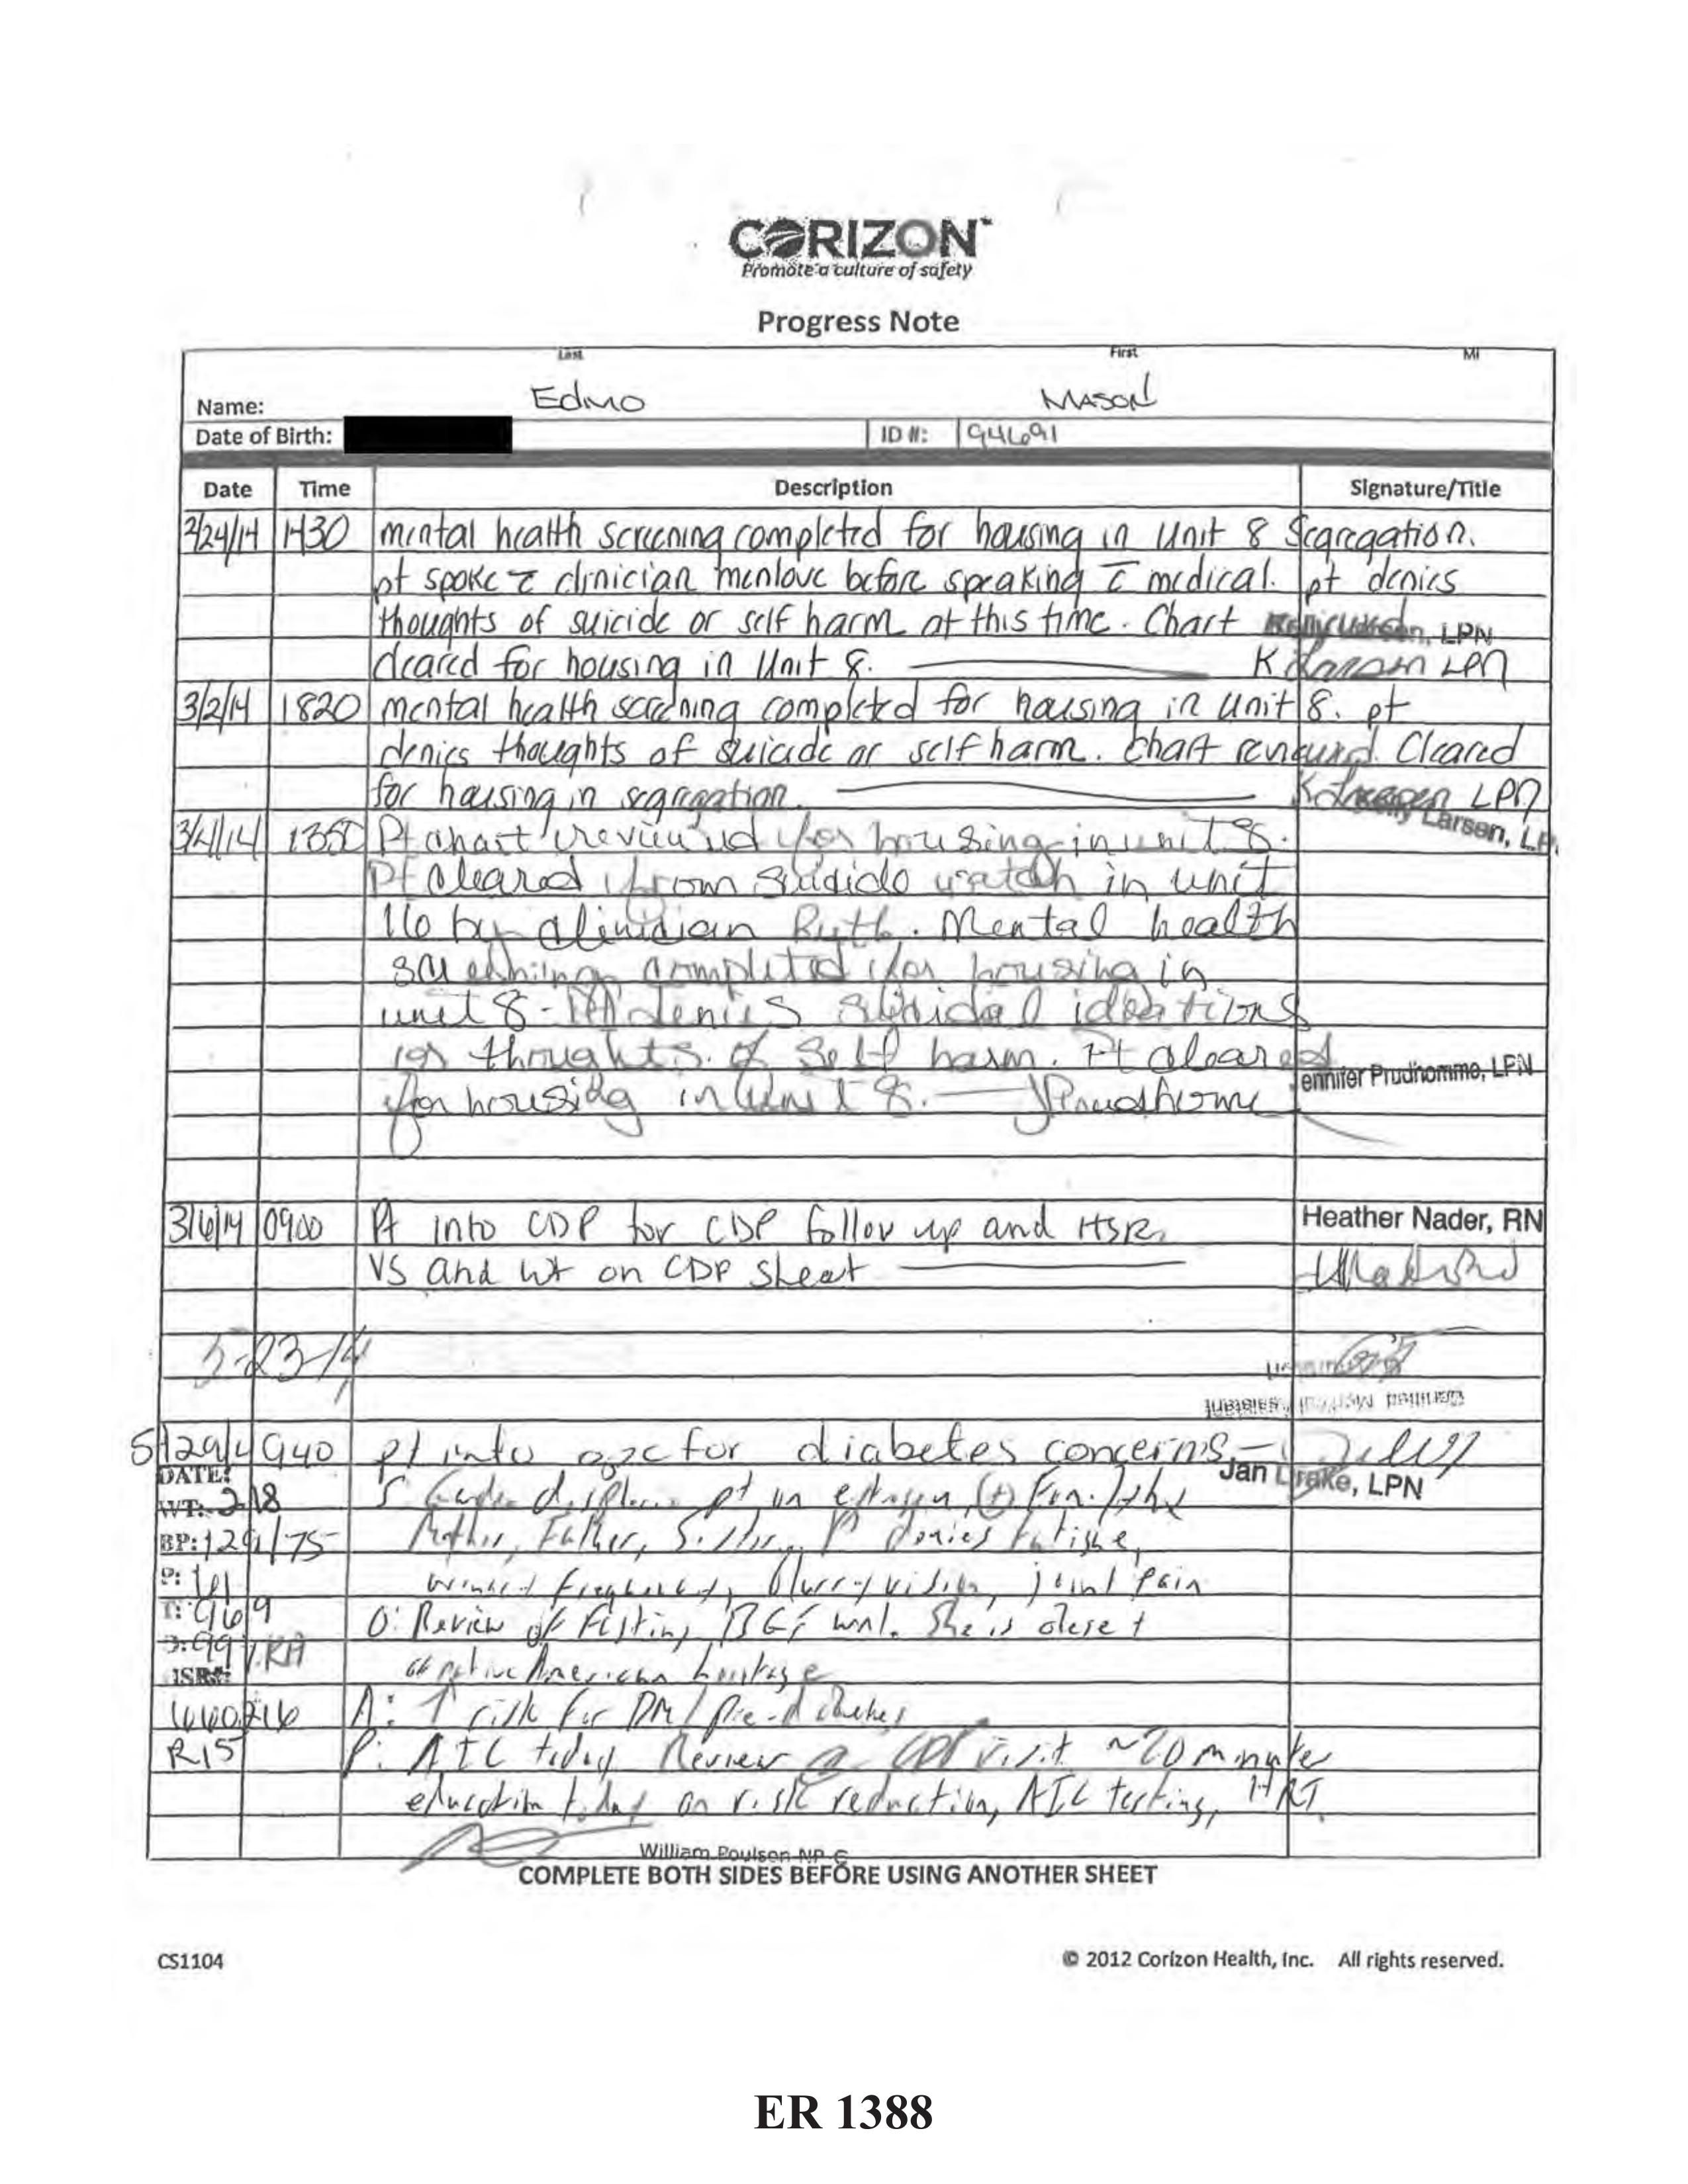 CORIZON
Promote a culture of safety
Progress Note
Last First MI
Name: Edmo Mason
Date of Birth: ID #: 94691
Date Time Description Signature/Title
2/24/14 1430 mental health screening completed for housing in Unit 8 Segregation.
pt spoke c̄ clinician menlove before speaking c̄ medical. pt denies
thoughts of suicide or self harm at this time. Chart LPN
cleared for housing in Unit 8. K Larsen LPN
3/2/14 1820 mental health screening completed for housing in unit 8. pt
denies thoughts of suicide or self harm. Chart reviewed. Cleared
for housing in segregation. K Larsen LPN
Kelly Larsen, LP
3/4/14 1350 Pt chart reviewed for housing in unit 8.
Pt cleared from suicide watch in unit
16 by clinician Ruth. Mental health
screening completed for housing in
unit 8 - Pt denies suicidal ideations
or thoughts of self harm. Pt cleared
ennifer Prudhomme, LPN
for housing in Unit 8. JPrudhomme
3/6/14 0900 Pt into CDP for CDP follow up and HSR.
Heather Nader, RN
VS and wt on CDP sheet
5-23-14
5/29/14 0940 pt into for diabetes concerns
Jan Drake, LPN
DATE:
WT: 218
S: pt on estrogen, (+) Fam. hx
BP: 129/75
Mother, Father, Sister, Pt denies fatigue,
P: 61
frequency, blurry vision, joint pain
T: 969
O: Review of Fasting BGs wnl. She is
99% RA
of native American heritage
ISR#:
660216 A: ↑ risk for DM / Pre-diabetes
R15 P: A1C today Review @ CDP visit ~20 minute
education today on risk reduction, A1C testing, HRT
William Poulson NP-C
COMPLETE BOTH SIDES BEFORE USING ANOTHER SHEET
CS1104 © 2012 Corizon Health, Inc. All rights reserved.
ER 1388